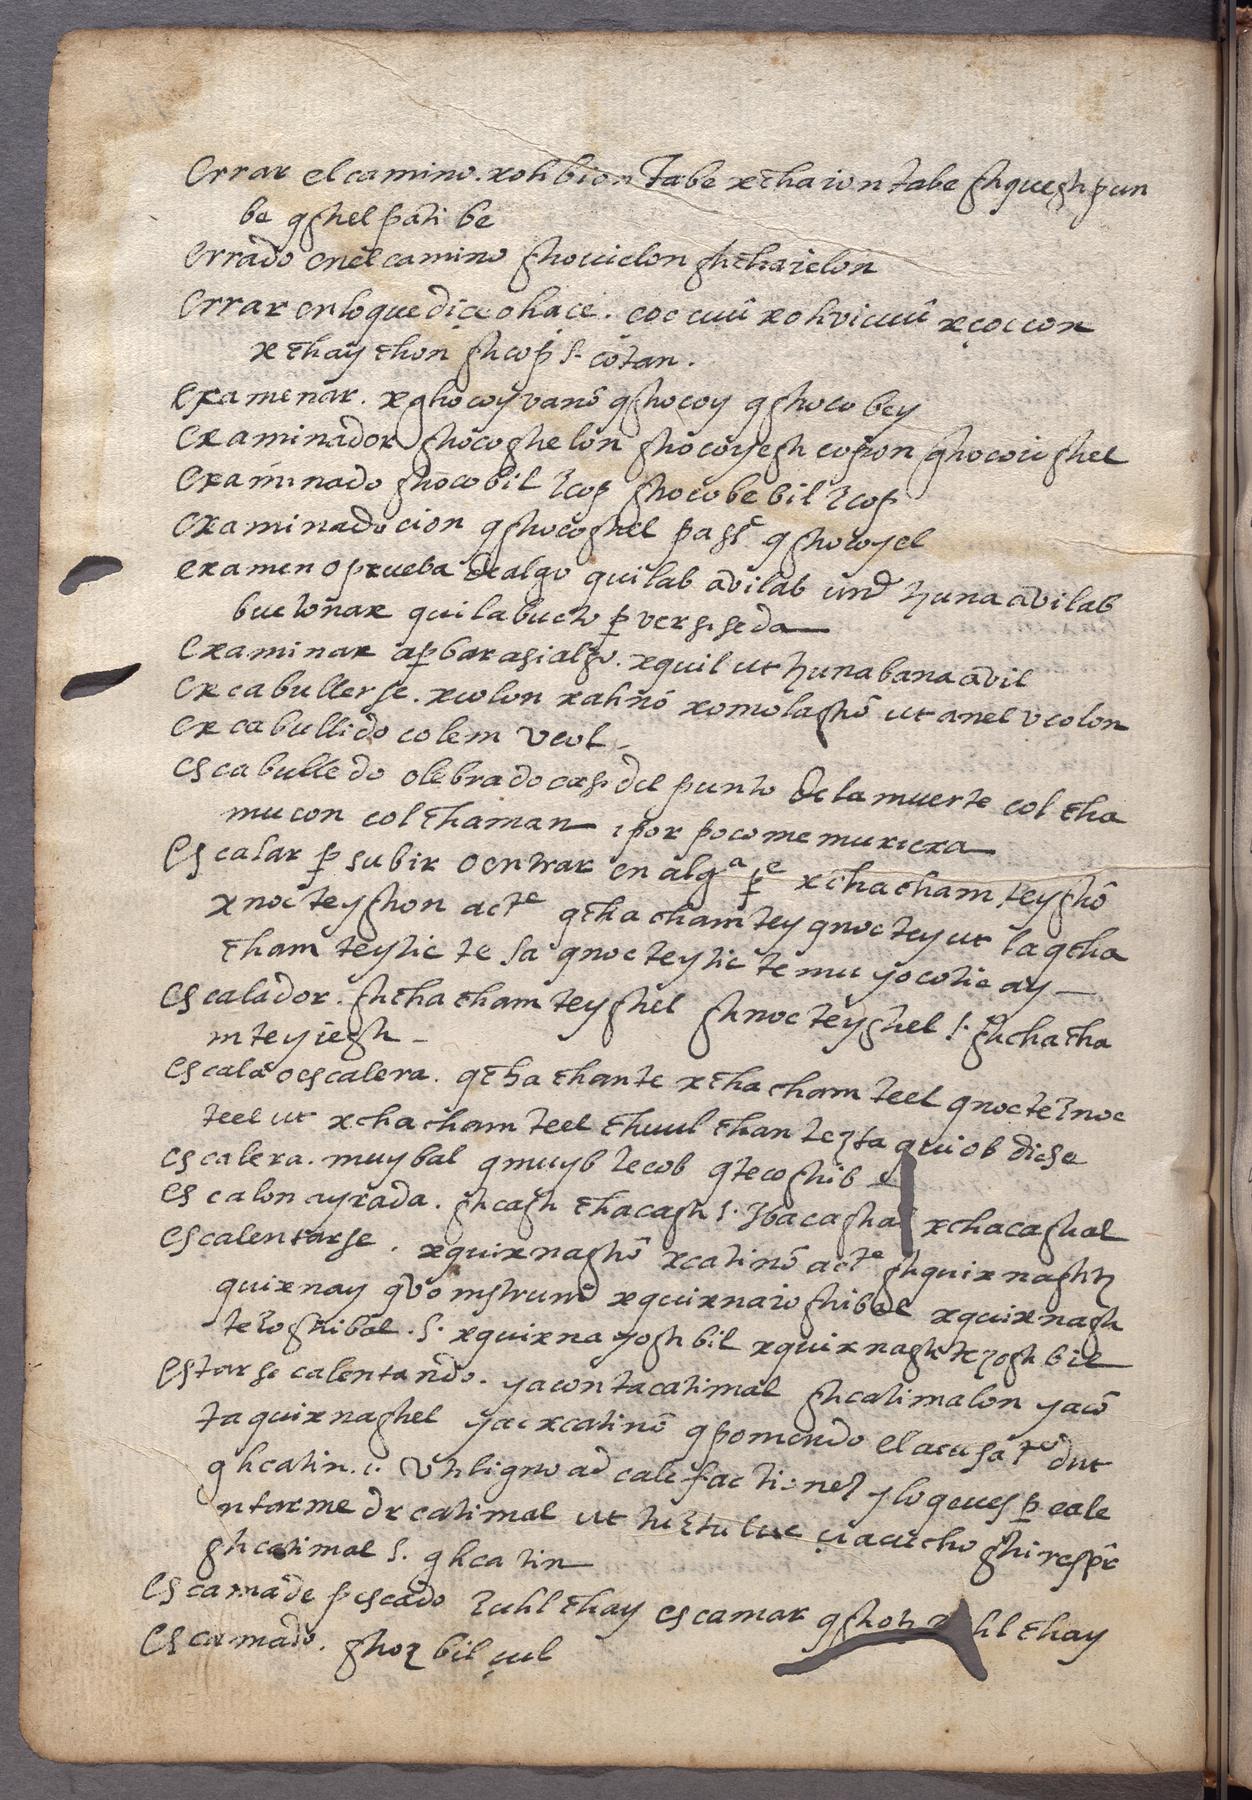 Errar el camino. xohbion tabe xchaiontabe ghquegh pun
be qghel pati be
Errado en el camino ghouielon ghchaielon
Errar en lo que diçe o haçe. coc cuû xohvicuû xcoccon
xchaychon ghcop s. cotan.
examenar. xghocoy vanõ qghocoy qghoco bey
examinador ghocoghelon ghocoyegh copon ghocoieghel
examinado ghocobil Zcop ghocobebil Zcop
examinadocion qghocoghel pass.e qghocoyel
examen o prueba de algo quilab avilab und hunaavilab
buctonar quilabucto p versiseda
examinar aprbarasialgo. xquil ut hunabana avil
excabullerse. xcolon xahnõ xomolaghõ ut anel vcolon
excabullido colem vcol
escabulledo olebrado casi del punto de la muerte col cha
mucon colchaman i por pocomemuriera
Escalar p subir o entrar en alg.a p.e xchacham teyghõ
xnocteyghon act.e qchachamtey qnoctey ut laqcha
cham teytic te sa qnocteytic te mu yocotic ay
escalador. ghchachamteyghel ghnocteyghel s. ghchacha
mteyiegh
escala o escalera. qchachante xchachamteel qnocteinoc
teel ut xchachamteel chuul chan tezta quiob dicha
escalera. muybal qmuyb tecob qtecoghib
escalon ayrada. ghcagh chacagh s. Zbacaghal xchacaghal
escalentarse. xquixnaghõ xcatinõ act.e ghquixnaghtz
quixnay qvo instrumd xquixnaioghibal xquixnagh
teioghibal. s. xquixnayoghbil xquixnaghtezoghbil
estarse calentando. yacontacatimal ghcatimalon yacõ
taquixnaghel yac xcatinõ qpomendo el acusat.vo dut
qhcatin. i. vt ligno ad calefactionez y lo queuesp cale
ntarme dr catimal ut tuztuluc çiauccho ghi respõe
ghcatimal s. qhcatin
escama de pescado Zuhlchay escamar qghotz hlchay
escamado. ghozbil çul